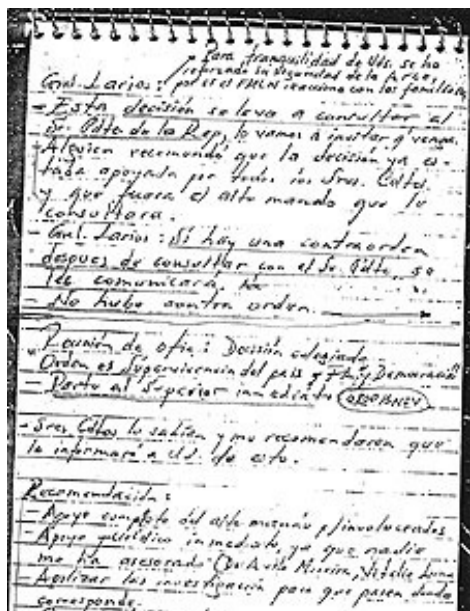 Para tranquilidad de Uds. se ha
reforzado la seguridad de la
Gral. Larios: por si el FMLN reacciona con las familias
- Esta decisión se leva a consultar al
Sr. Pdte de la Rep, lo vamos a invitar q' venga.
- Alguien recomendó que la decisión ya es-
taba apoyada por todos los Sres. Cdtes.
y que fuera el alto mando que lo
consultara.
- Gral. Larios: Si hay una contraorden
despues de consultar con el Sr. Pdte, se
les comunicará,
- No hubo contra orden.
Reunión de ofic: Decisión colegiada
Orden es Supervivencia del pais y Democracia
- Parte al Superior inmediato
- Sres. Cdtes lo sabían y me recomendaron que
le informara a Ud. de esto.
Recomendación:
- Apoyo completo del alto mando p/involucrados
- Apoyo jurídico inmediato, ya que nadie
me ha asesorado (Dr.
- Agilizar las investigación para que pasen donde
corresponde.